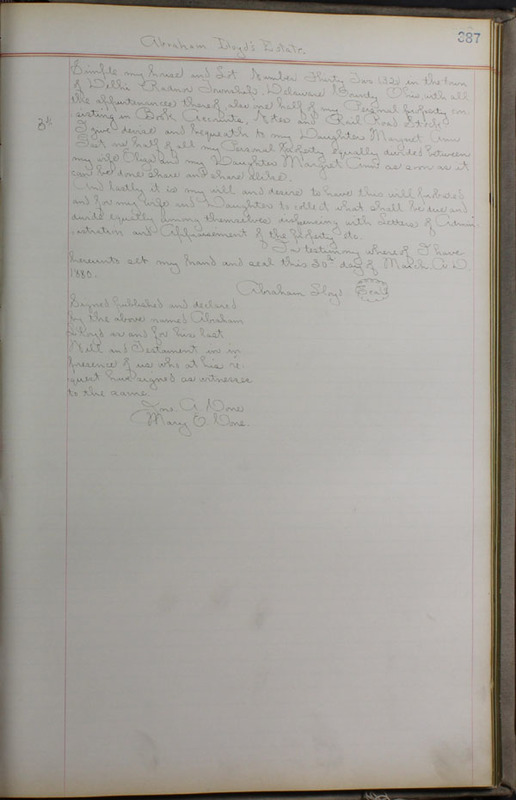 387
Abraham Lloyd's Estate.
Simple my house and Lot Number Thirty Two (32) in the town
of Delhi Radnor Township Delaware County Ohio with all
the appurtenances thereof, also one half of my Personal property con-
sisting in Book Accounts, Notes and Rail Road Stock.
3d I give devise and bequeath to my Daughter Margret Ann
one half of all my Personal property equally divided between
my wife and my Daughter Margret Ann as soon as it
can be done share and share alike.
And lastly it is my will and desire to have this will
and for my wife and Daughter to collect what shall be due and
divide equally among themselves with Letters of Admin-
istration and Appraisement of the property etc.
In testimony whereof I have
hereunto set my hand and seal this 30th day of March A.D.
1880.
Abraham Lloyd Seal
Signed published and declared
by the above named Abraham
Lloyd as and for his last
Will and Testament in
presence of us who at his re-
quest have signed as witnesses
to the same.
G
Mary E.